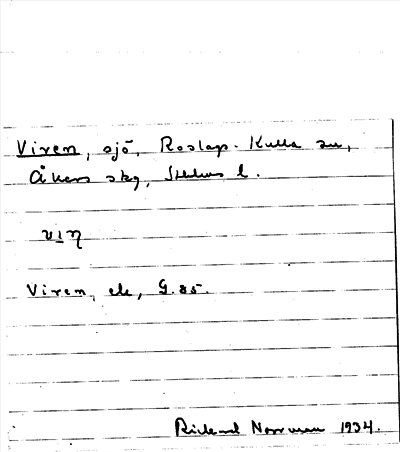 Viren, sjö, Roslags-Kulla sn,
Åkers skg, Sthlms l.
Viren, ek, G.85.
Rickard Norrman 1934.